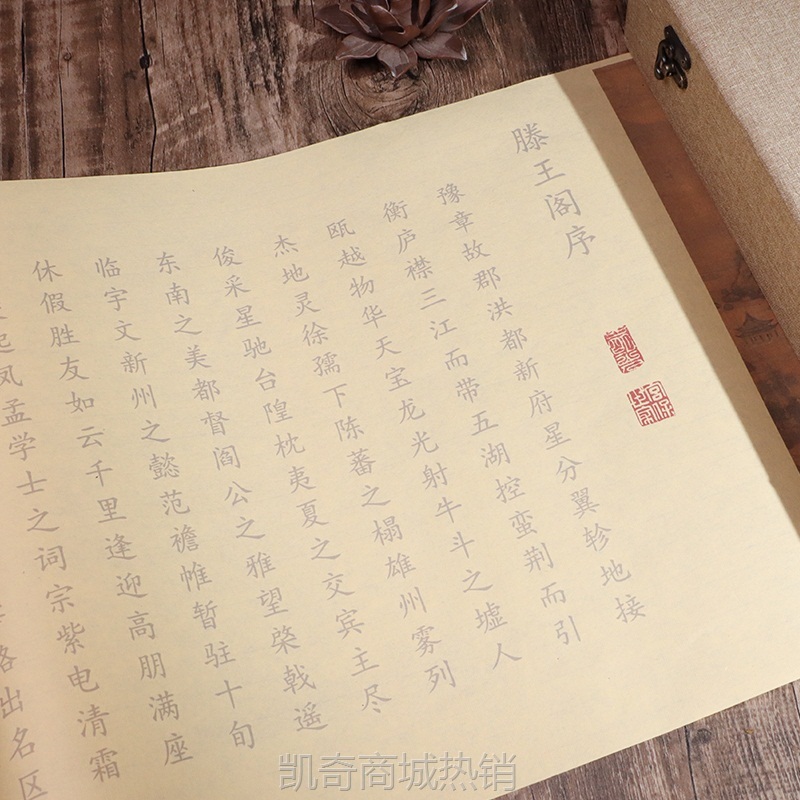 滕王阁序
豫章故郡洪都新府星分翼轸地接
衡庐襟三江而带五湖控蛮荆而引
瓯越物华天宝龙光射牛斗之墟人
杰地灵徐孺下陈蕃之榻雄州雾列
俊采星驰台隍枕夷夏之交宾主尽
东南之美都督阎公之雅望棨戟遥
临宇文新州之懿范襜帷暂驻十旬
休假胜友如云千里逢迎高朋满座
起凤孟学士之词宗紫电清霜
路出名区
凯奇商城热销